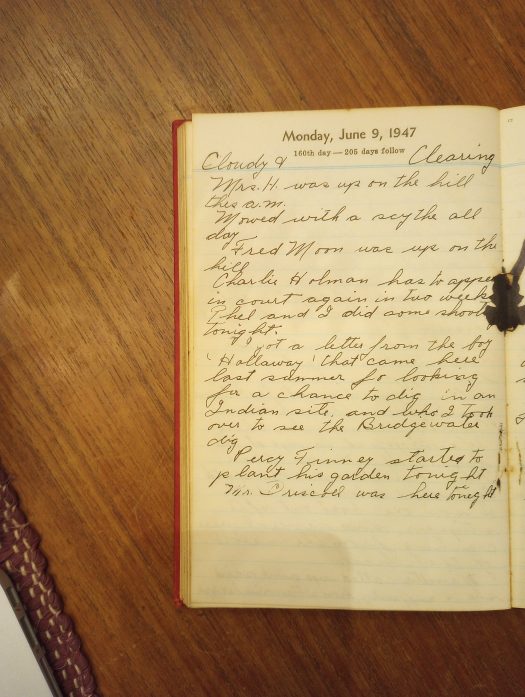 Monday, June 9, 1947
160th day — 205 days follow
Cloudy & Clearing
Mrs. H. was up on the hill
this a.m.
Mowed with a scythe all
day
Fred Moon was up on the
hill
Charlie Holman has to appear
in court again in two weeks
Phel and I did some shooting
tonight.
I got a letter from the boy
'Hallaway' that came here
last summer looking
for a chance to dig in an
Indian site, and who I took
over to see the Bridgewater
dig
Percy Finney started to
plant his garden tonight
Mr. Driscoll was here tonight